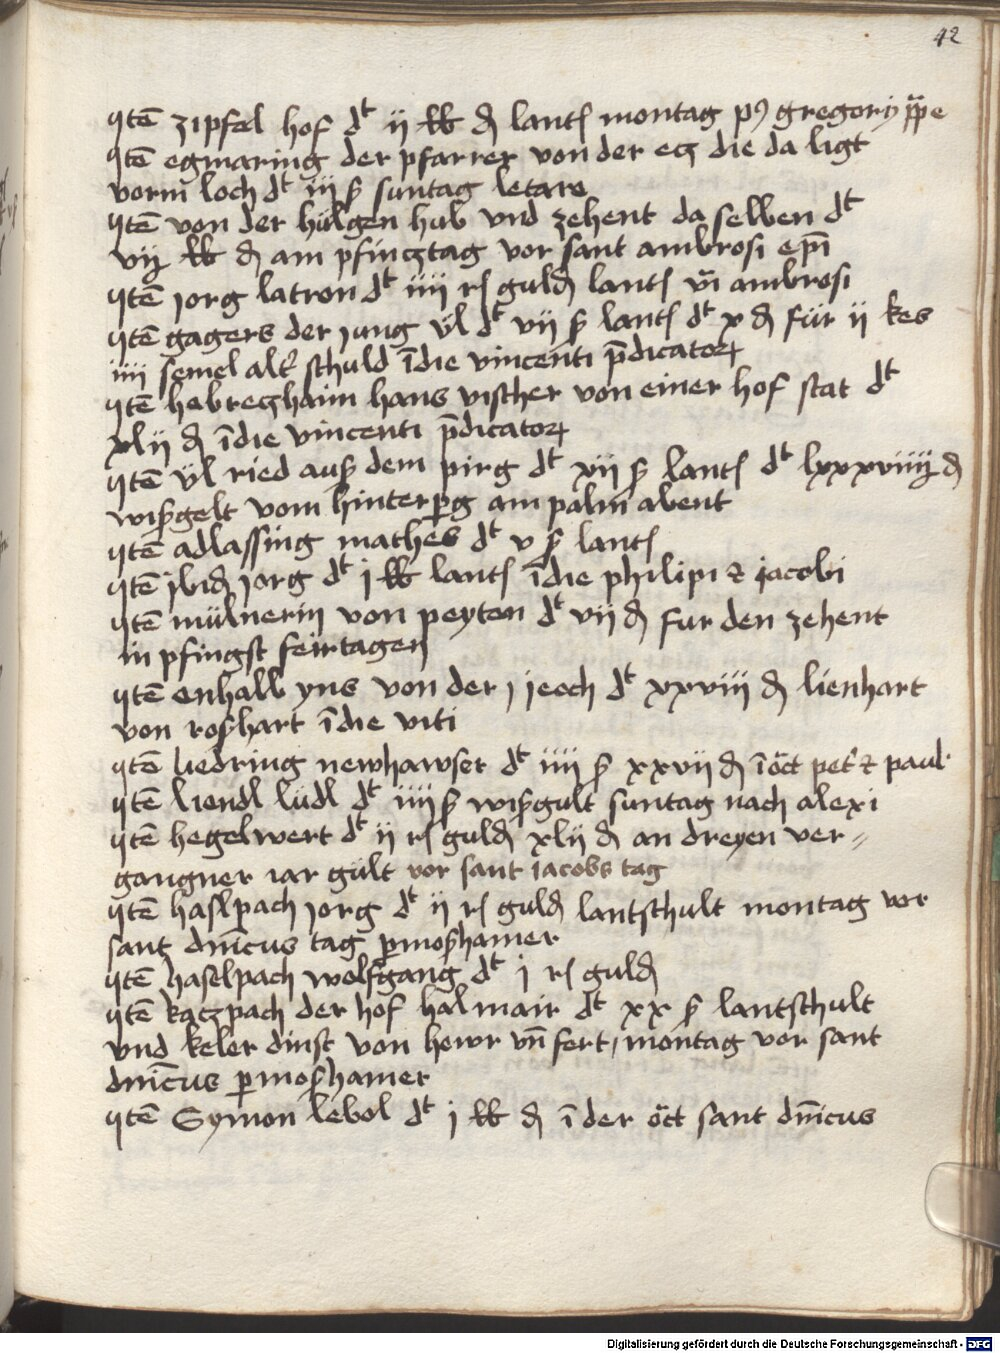 42
Itē zipfel hof dt ij lb d lantß montag p9 gregorij ppe
Itē egmaring der pfarrer von der ecz die da ligt
vorm loch dt iij ß suntag letare
Itē von der hülgen hub vnd zehent da selben dt
vij lb d am pfincztag vor sant ambrosi epi
Itē jorg latron dt iiij rß guld lantß vi ambrosi
Itē gagers der jung vl dt vij ß lantß dt x d für ij kes
iiij semel alt schuld ī die vincenti p̄dicator
Itē hebreczhaim hans vischer von einer hof stat dt
xlij d ī die vincenti p̄dicator
Itē vl ried auß dem pirg dt xij ß lantß dt lxxxviiij d
wißgelt vom hinterpg am palm abent
Itē adlassing mathes dt v ß lantß
Itē ibid jorg dt j lb lantß ī die philipi & jacobi
Itē mülnerin von peyten dt vij d fur den zehent
in pfingst feirtagen
Itē enhalb yns von der j jeoch dt xxviii d lienhart
von roßhart ī die viti
Itē liedring newhawser dt iiij ß xxvij d ī oct pet & paul
Itē liendl lüdl dt iiij ß wißgult suntag nach alexi
Itē hegelwert dt ij rß guld xlij d an dreyen ver-
gangner iar gült vor sant iacobs tag
Itē haslpach jorg dt ij rß guld lantschult montag vor
sant dn̄icus tag pmoßhamer
Itē haselpach wolfgang dt j rß guld
Itē kaczpach der hof halmair dt xx ß lantschult
vnd keler dinst von hewr vn̄ fert / montag vor sant
dn̄icus pmoßhamer
Itē Symon lebol dt j lb d ī der oct sant dn̄icus
Digitalisierung gefördert durch die Deutsche Forschungsgemeinschaft - DFG